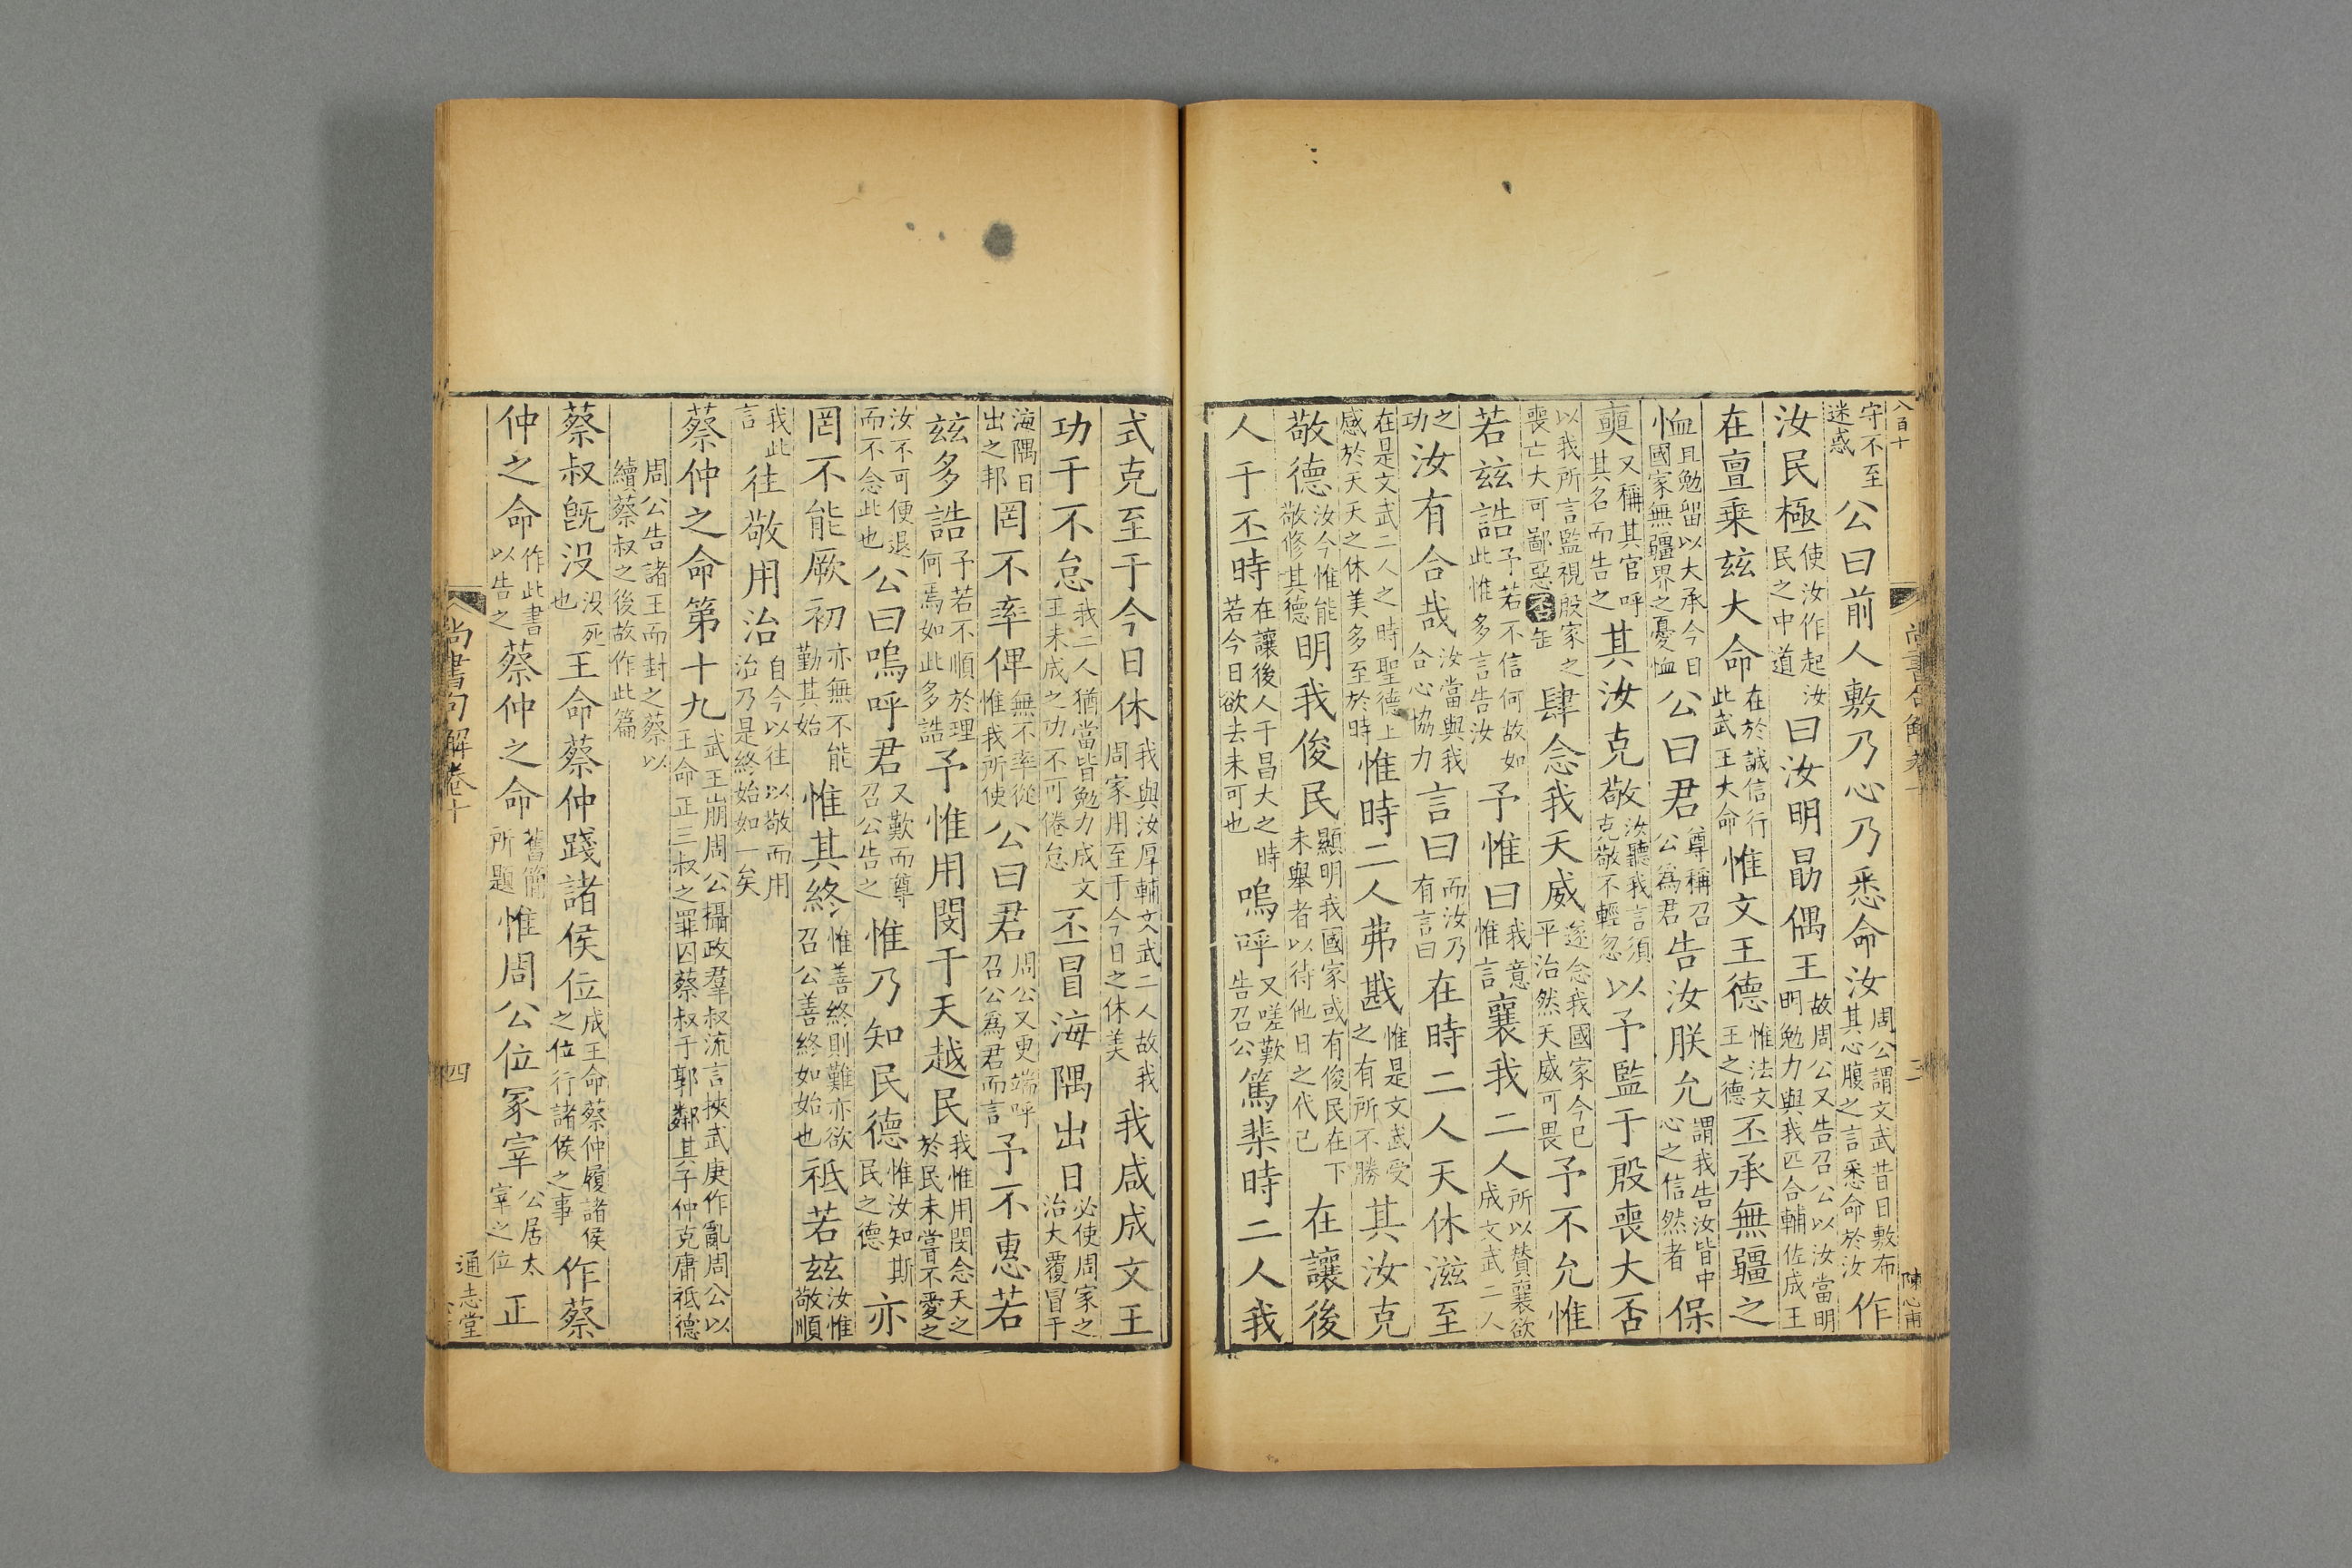 八百十
尚書句解卷十
三
陳心甫
守不至迷惑公曰前人敷乃心乃悉命汝周公謂文武昔日敷布其心腹之言悉命於汝作
汝民極使汝作起汝民之中道曰汝明勗偶王故周公又告召公以汝當明明勉力與我匹合輔佐成王
在亶乗兹大命在於誠信行此武王大命惟文王德惟法文王之德丕承無疆之
恤且勉留以大承今日國家無疆界之憂恤公曰君尊稱召公為君告汝朕允謂我告汝皆中心之信然者保
奭又稱其官呼其名而告之其汝克敬汝聽我言須克敬不輕忽以予監于殷喪大否
以我所言監視殷家之喪亡大可鄙惡否缶肆念我天威遂念我國家今已平治然天威可畏予不允惟
若兹誥予若不信何故如此惟多言告汝予惟曰我意惟言襄我二人所以贊襄欲成文武二人
之功汝有合哉汝當與我合心協力言曰而汝乃有言曰在時二人天休滋至
在是文武二人之時聖德上感於天天之休美多至於時惟時二人弗戡惟是文武受之有所不勝其汝克
敬德汝今惟能敬修其德明我俊民顯明我國家或有俊民在下未舉者以待他日之代已在讓後
人于丕時在讓後人于昌大之時若今日欲去未可也嗚呼又嗟歎告召公篤棐時二人我
式克至于今日休我與汝厚輔文武二人故我周家用至于今日之休美我咸成文王
功于不怠我二人猶當皆勉力成文王未成之功不可倦怠丕冒海隅出日必使周家之治大覆冒于
海隅日出之邦罔不率俾無不率從惟我所使公曰君周公又更端呼召公為君而言予不惠若
兹多誥予若不順於理何焉如此多誥予惟用閔于天越民我惟用閔念天之於民未嘗不愛之
汝不可便退而不念此也公曰嗚呼君又歎而尊召公告之惟乃知民德惟汝知斯民之德亦
罔不能厥初亦無不能勤其始惟其終惟善終則難亦欲召公善終如始也祗若兹汝惟敬順
我此言往敬用治自今以往以敬而用治乃是終始如一矣
蔡仲之命第十九武王崩周公攝政羣叔流言挾武庚作亂周公以王命正三叔之罪囚蔡叔于郭鄰其子仲克庸祗德
周公告諸王而封之蔡以續蔡叔之後故作此篇
蔡叔旣没没死也王命蔡仲踐諸侯位成王命蔡仲履諸侯之位行諸侯之事作蔡
仲之命作此書以告之蔡仲之命舊簡所題惟周公位冢宰公居太宰之位正
尚書句解卷十
四
通志堂